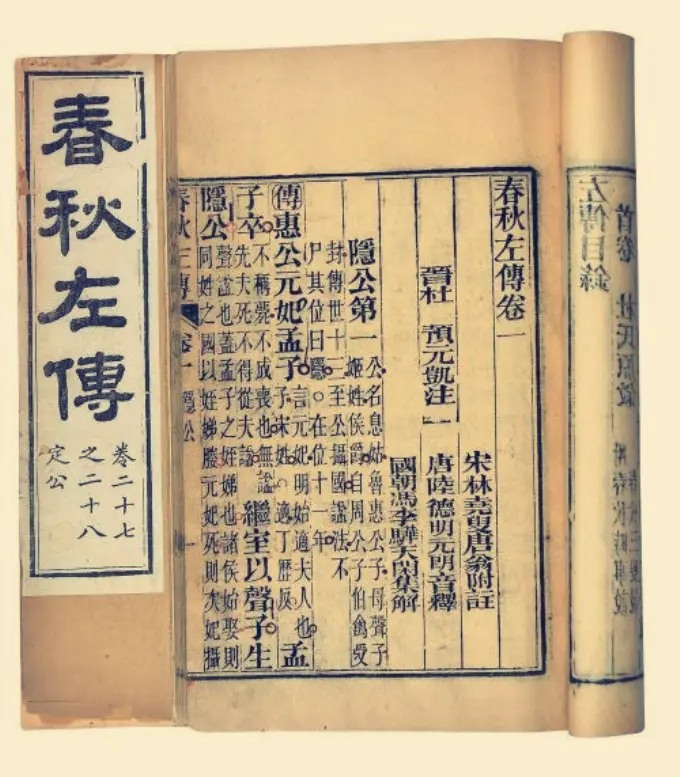 左傳目錄
首卷 杜氏原敘
春秋左傳卷一
晉杜 預元凱注
宋林堯叟唐翁附註
唐陸德明元明音釋
國朝馮李驊天閑集解
隱公第一
公名息姑魯惠公子母聲子
姬姓侯爵自周公子伯禽受
封傳世十三至公攝國諡法不
尸其位曰隱○在位十一年
傳惠公元妃孟子言元妃明始適夫人也子宋姓○適丁歷反孟
子卒不稱薨不成喪也無諡先夫死不得從夫諡繼室以聲子生
隱公聲諡也蓋孟子之姪娣也諸侯始娶則同姓之國以姪娣媵元妃死則次妃攝
春秋左傳 卷一 隱公
春秋左傳
卷二十七
之二十八
定公